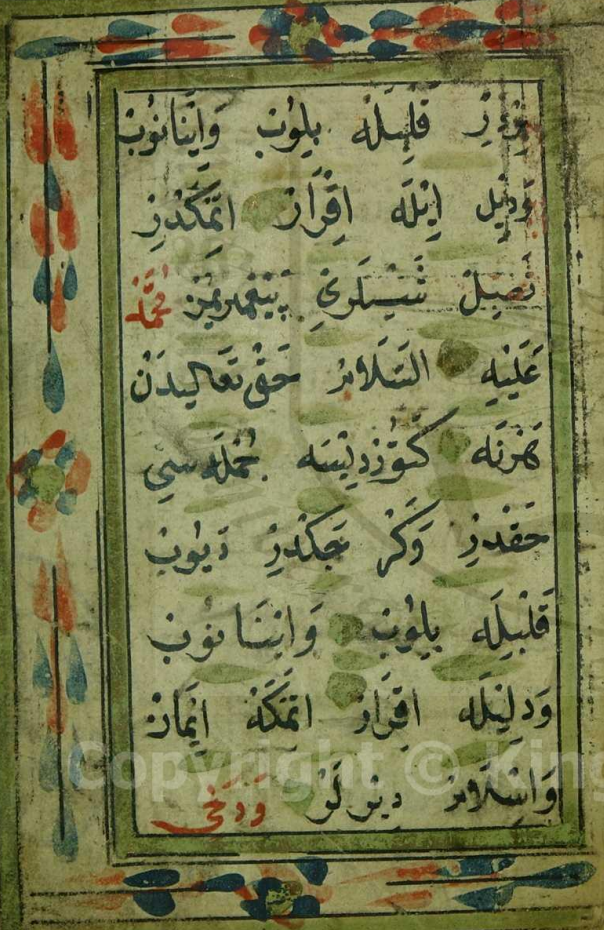 قَلْبِيلَه بِيلُوبْ وَاِينَانُوبْ
وَدِيلْ اِيْلَه اِقْرَارْ اِتْمَكْدِرْ
پَيْغَمْبَرِيمِزْ مُحَمَّدْ
عَلَيْهِ السَّلَامْ حَقْ تَعَالٰيدَنْ
هَرْنَه كَتُورْدِيسَه جُمْلَه سِي
حَقْدِرْ وَكَرْچَكْدِرْ دَيُوبْ
قَلْبِيلَه بِيلُوبْ وَاِينَانُوبْ
وَدِلِيلَه اِقْرَارْ اِتْمَكَه اِيمَانْ
وَاِسْلَامْ دِيرْلَرْ وَدَخِي
Copyright © King